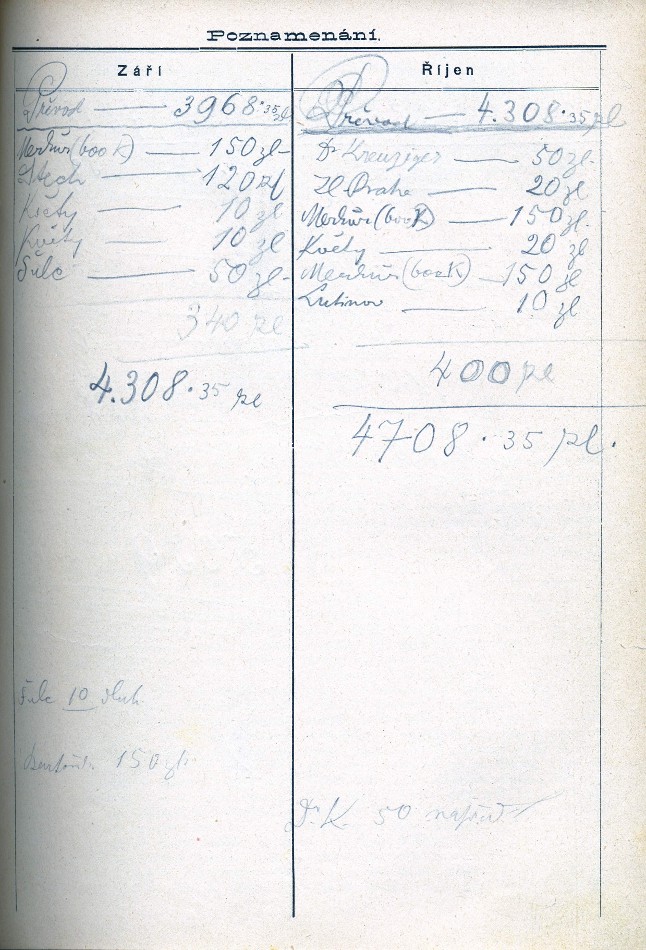 Poznamenání.
Září
Převod — 3968·35 zl
Merkur (book) — 150 zl
120 zl
Květy — 10 zl
Květy — 10 zl
Šulc — 50 zl
340 zl
4.308·35 zl
Šulc 10 dluh
150 zl
Říjen
Převod — 4.308·35 zl
Dr Kreuziger — 50 zl.
Zl Praha — 20 zl
Merkur (book) — 150 zl.
Květy — 20 zl
Merkur (book) — 150 zl
10 zl
400 zl
4708·35 zl.
Dr. K. 50 napřed